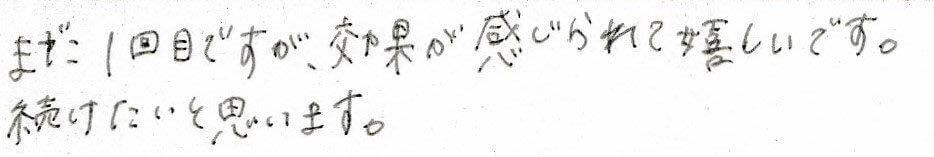 まだ1回目ですが、効果が感じられて嬉しいです。
続けたいと思います。